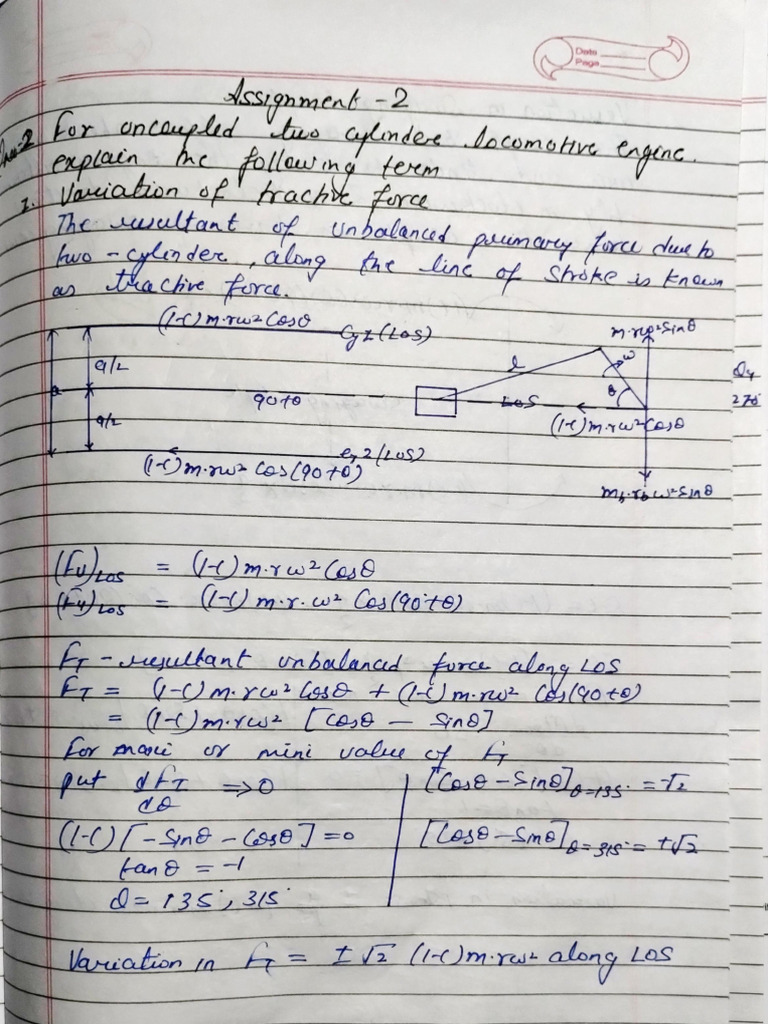 Date
Page
Assignment - 2
For uncoupled two cylindere locomotive engine.
explain the following term
1. Variation of tractive force
The resultant of unbalanced primary force due to
two-cylinder, along the line of stroke is known
as tractive force.
(1-C) m.rω² Cosθ
Cy 1 (LOS)
m.rω² Sinθ
a/2
l
ω
a
90+θ
LOS
θ
(1-C) m.rω² Cosθ
270
a/2
Cy 2 (LOS)
(1-C) m.rω² Cos(90+θ)
m_b.r_b ω² Sinθ
(Fu)LOS = (1-C) m.rω² Cosθ
(Fu)LOS = (1-C) m.r.ω² Cos(90°+θ)
F_T - resultant unbalanced force along LOS
F_T = (1-C) m.rω² Cosθ + (1-C) m.rω² Cos(90+θ)
= (1-C) m.rω² [Cosθ - Sinθ]
For maxi or mini value of F_T
put dF_T/dθ => 0
(1-C) [-Sinθ - Cosθ] = 0
tanθ = -1
θ = 135°, 315°
[Cosθ - Sinθ]θ=135° = -√2
[Cosθ - Sinθ]θ=315° = +√2
Variation in F_T = ±√2 (1-C) m.rω² along LOS